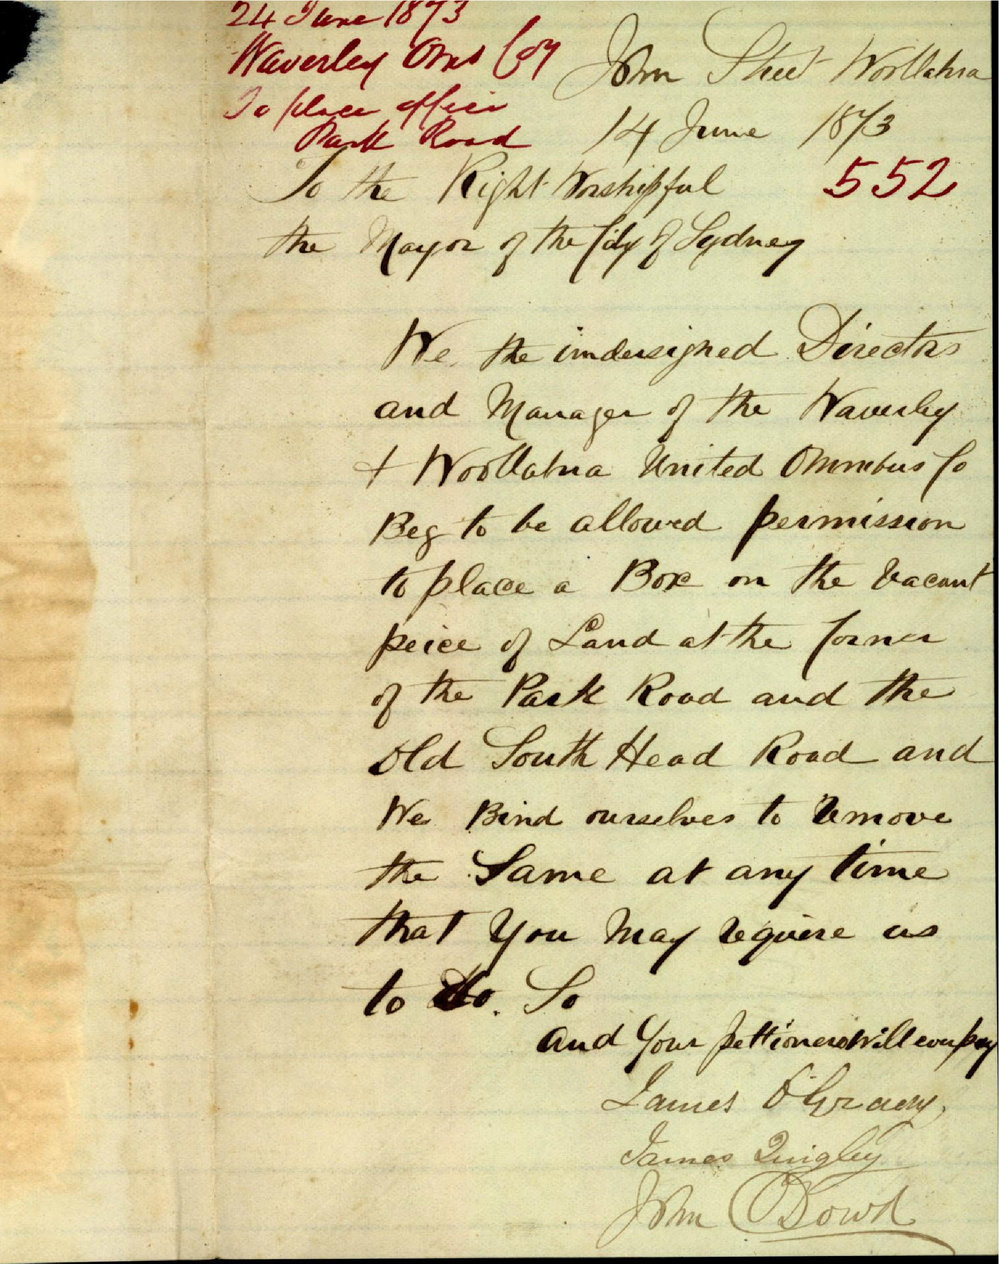 24 June 1873
Waverley Oms Coy
To place office
Park Road
John Street Woollahra
14 June 1873
552
To the Right Worshipful
the Mayor of the City of Sydney
We the undersigned Directors
and Manager of the Waverley
+ Woollahra United Omnibus Co
Beg to be allowed permission
to place a Box on the Vacant
peice of Land at the Corner
of the Park Road and the
Old South Head Road and
We Bind ourselves to Remove
the Same at any time
that You May require us
to do. So
and Your pettioners will ever pay
James O'Grady.
James Quigley
John O'Dowd